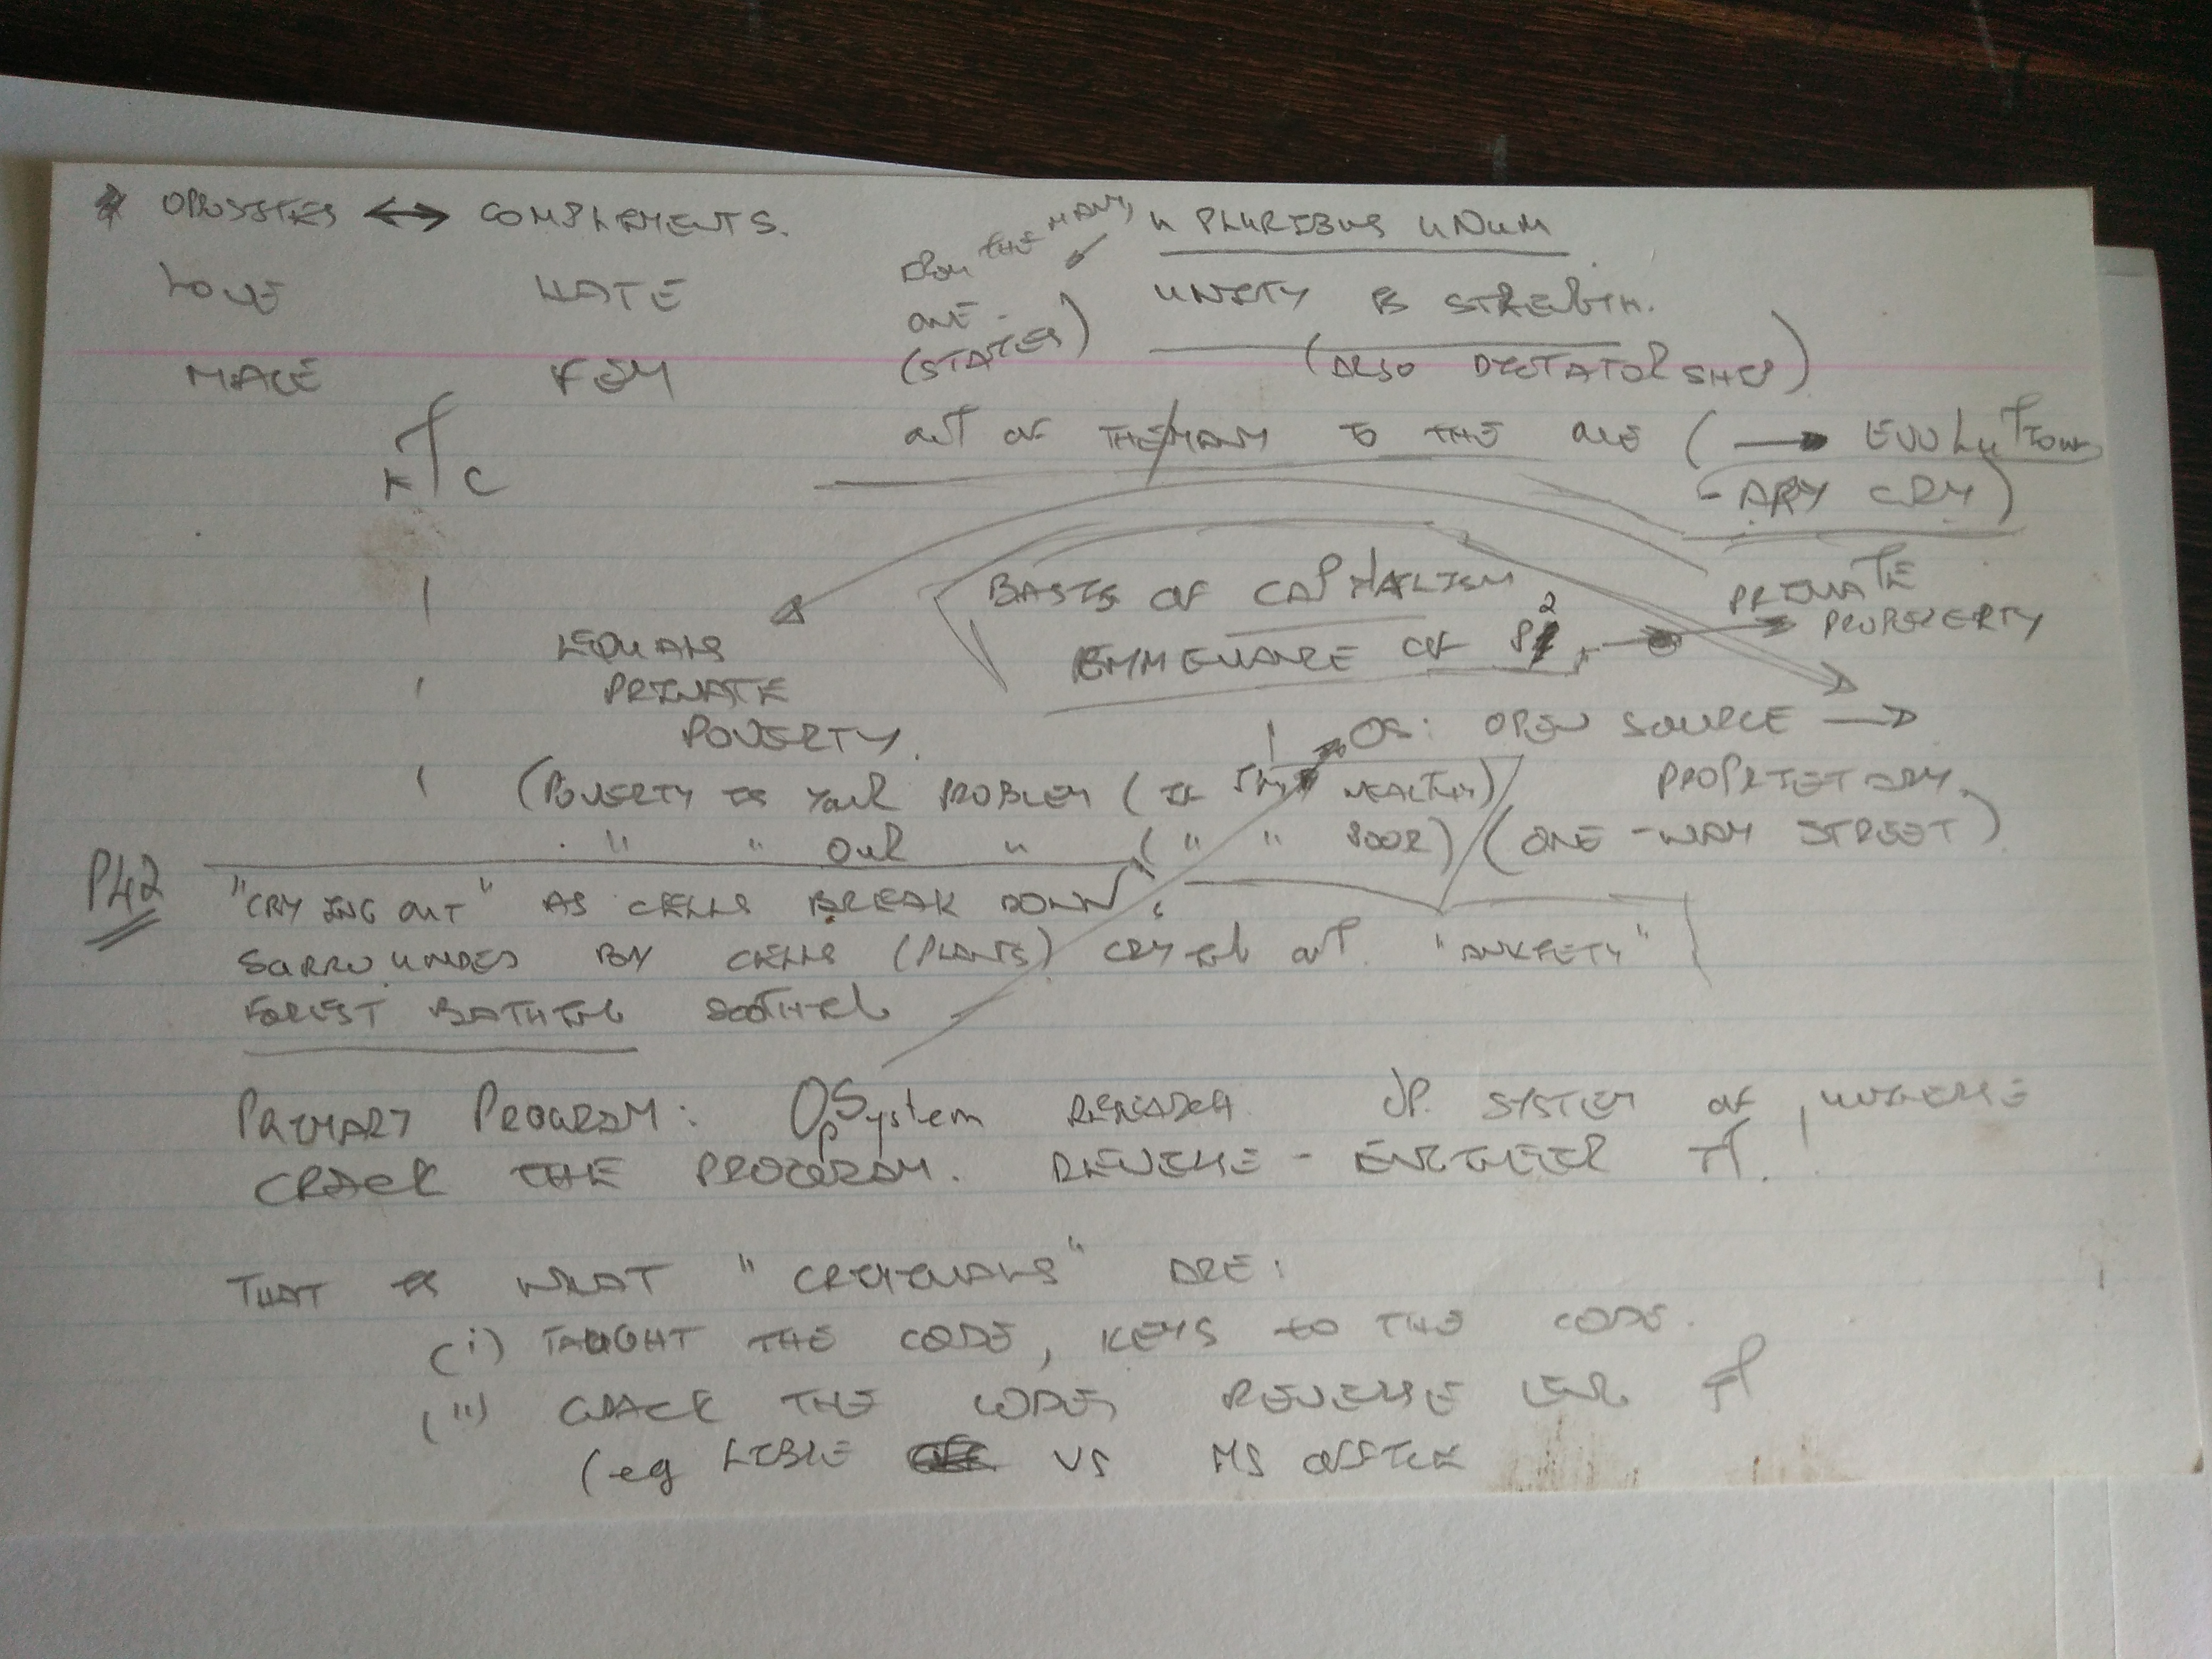 * OPPOSITES ↔ COMPLEMENTS.
LOVE HATE
MALE FEM
F T C
FROM THE MANY
ONE -
(STATES)
PLURIBUS UNUM
UNITY IS STRENGTH.
(ALSO DICTATORSHIP)
OUT OF THE/MANY TO THE ONE (→ EVOLUTION
-ARY CRY)
BASIS OF CAPITALISM
OF P2 → PRIVATE
PROPERTY
EQUALS
PRIVATE
POVERTY.
OS: OPEN SOURCE →
PROPRIETARY
(ONE-WAY STREET)
(POVERTY IS YOUR PROBLEM (IF WEALTHY)
" " OUR " ( " " POOR)
P42
"CRYING OUT" AS CELLS BREAK DOWN
SURROUNDED BY CELLS (PLANTS) CRYING OUT "ANXIETY"
FOREST BATHING SOOTHING
PRIMARY PROGRAM: OpSystem RESEARCH OP. SYSTEM OF UNIVERSE
CRACK THE PROGRAM. REVERSE-ENGINEER IT.
THAT IS WHAT "CRIMINALS" ARE:
(i) TAUGHT THE CODE, KEYS TO THE CODE.
(ii) CRACK THE CODE, REVERSE ENG IT
(eg LIBRE VS MS OFFICE